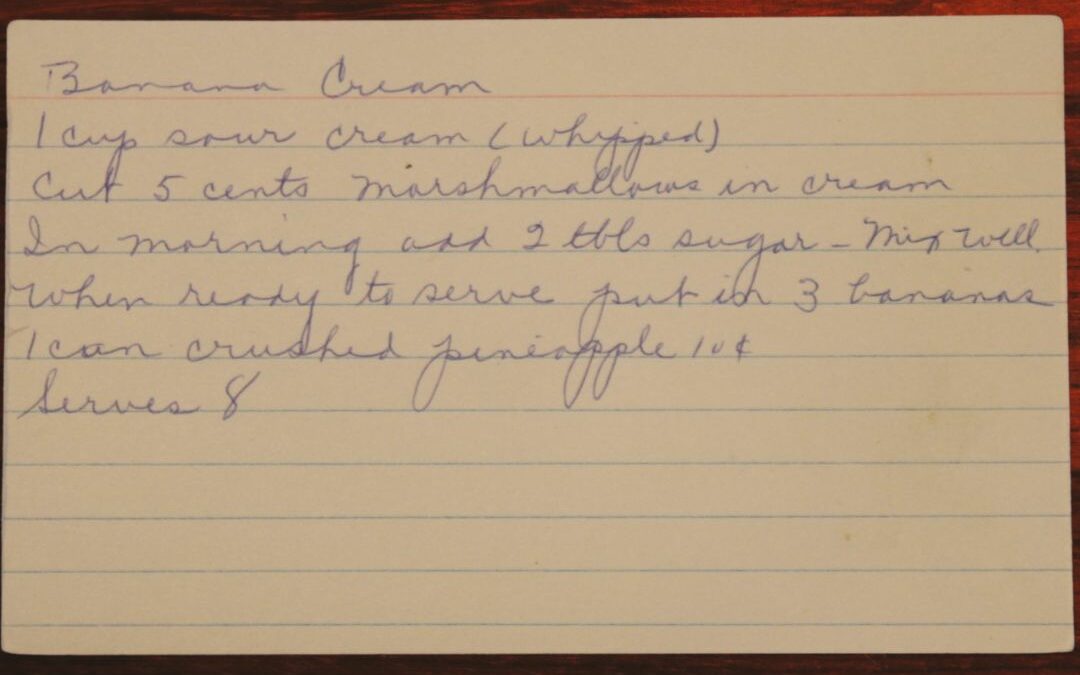 Banana Cream
1 cup sour cream (whipped)
Cut 5 cents marshmallows in cream
In morning add 2 tbls sugar - Mix well.
When ready to serve put in 3 bananas
1 can crushed pineapple 10¢
Serves 8